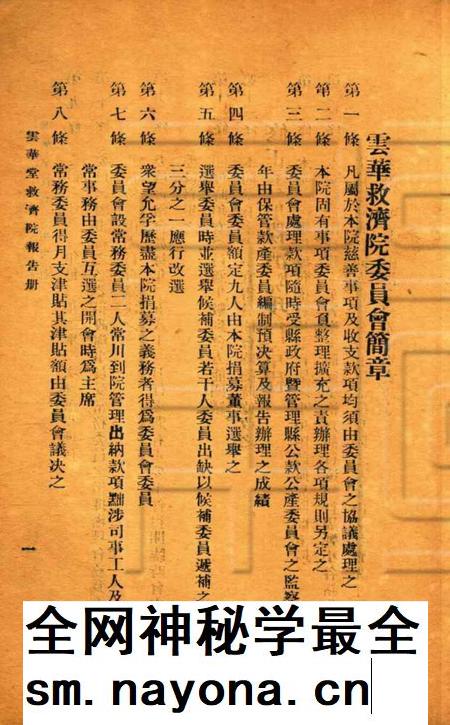 雲華救濟院委員會簡章
第一條 凡屬於本院慈善事項及收支款項均須由委員會之協議處理之
第二條 本院固有事項委員會負整理擴充之責辦理各項規則另定之
第三條 委員會處理款項隨時受縣政府暨管理縣公款公產委員會之監察
年由保管款產委員編制預決算及報告辦理之成績
第四條 委員會委員額定九人由本院捐募董事選舉之
第五條 選舉委員時並選舉候補委員若干人委員出缺以候補委員遞補之
三分之一應行改選
第六條 衆望允孚歷盡本院捐募之義務者得爲委員會委員
第七條 委員會設常務委員二人常川到院管理出納款項黜涉司事工人及
常事務由委員互選之開會時爲主席
第八條 常務委員得月支津貼其津貼額由委員會議决之
雲華堂救濟院報告册
一
全网神秘学最全
sm.nayona.cn